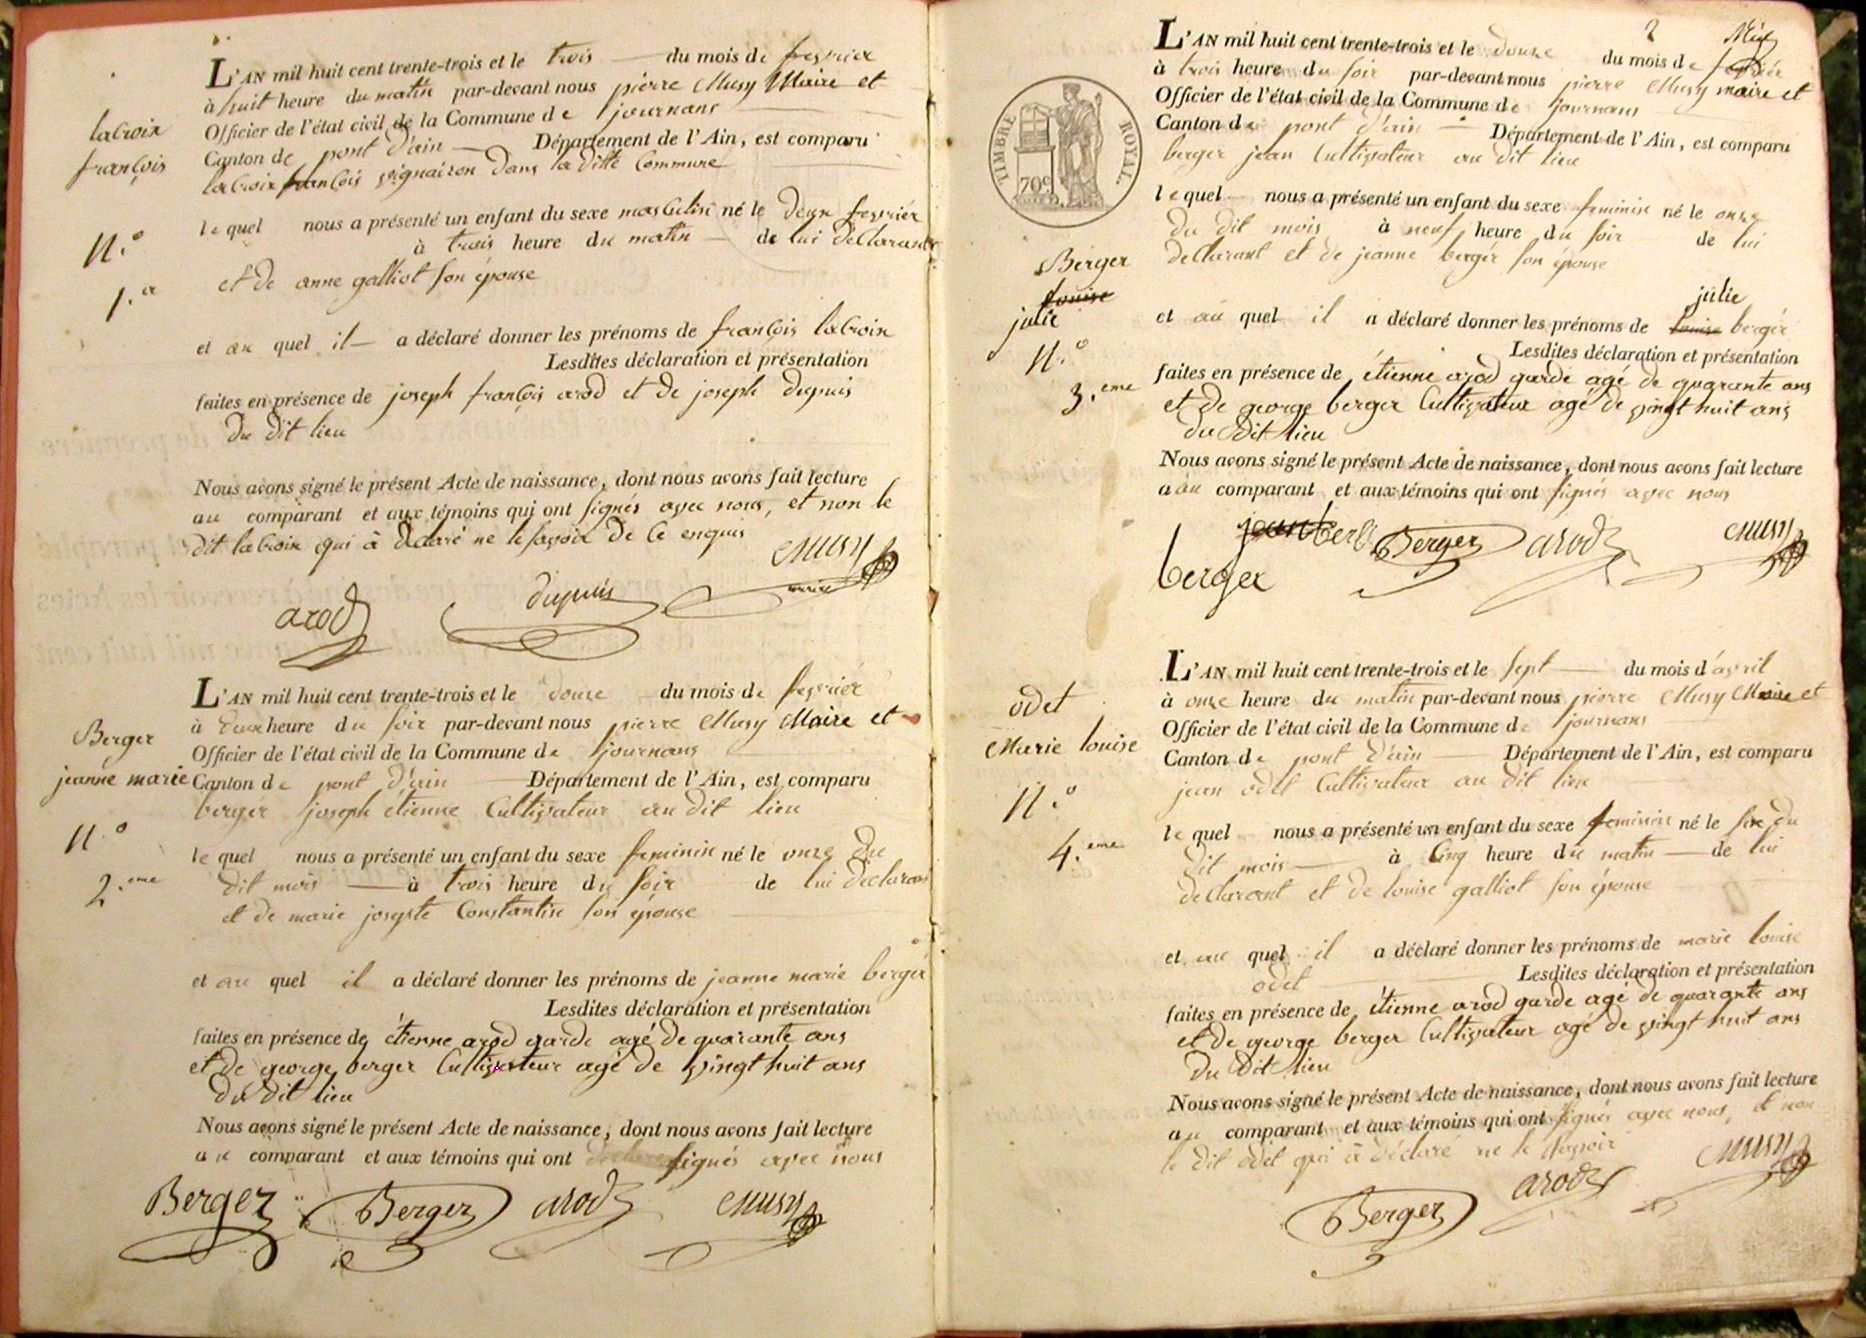 L'AN mil huit cent trente-trois et le trois du mois de fevrier
à huit heure du matin par-devant nous pierre Musy Maire et
Officier de l'état civil de la Commune de journans
Canton de pont d'ain Département de l'Ain, est comparu
labroix françois vignairon dans la ditte Commune
lequel nous a présenté un enfant du sexe masculin né le deux fevrier
à trois heure du matin de lui declarant
et de anne galliot son épouse
et au quel il a déclaré donner les prénoms de françois labroix
Lesdites déclaration et présentation
faites en présence de joseph françois arod et de joseph dupuis
du dit lieu
Nous avons signé le présent Acte de naissance, dont nous avons fait lecture
au comparant et aux témoins qui ont signés avec nous, et non le
dit labroix qui à declaré ne le savoir de ce enquis
Musy
maire
arod
dupuis
labroix
françois
N.o
1.er
L'AN mil huit cent trente-trois et le douze du mois de fevrier
à deux heure du soir par-devant nous pierre Musy Maire et
Officier de l'état civil de la Commune de journans
Canton de pont d'ain Département de l'Ain, est comparu
berger joseph étienne Cultivateur au dit lieu
lequel nous a présenté un enfant du sexe feminin né le onze du
dit mois à trois heure du soir de lui declarant
et de marie josepte Constantin son épouse
et au quel il a déclaré donner les prénoms de jeanne marie berger
Lesdites déclaration et présentation
faites en présence de étienne arod garde agé de quarante ans
et de george berger Cultivateur agé de vingt huit ans
du dit lieu
Nous avons signé le présent Acte de naissance, dont nous avons fait lecture
au comparant et aux témoins qui ont signés avec nous
Berger Berger arod Musy
Berger
jeanne marie
N.o
2.eme
2
L'AN mil huit cent trente-trois et le douze du mois de fevrier
à trois heure du soir par-devant nous pierre Musy maire et
Officier de l'état civil de la Commune de journans
Canton de pont d'ain Département de l'Ain, est comparu
berger jean Cultivateur au dit lieu
lequel nous a présenté un enfant du sexe feminin né le onze
du dit mois à neuf heure du soir de lui
declarant et de jeanne berger son épouse
julie
et au quel il a déclaré donner les prénoms de louise berger
Lesdites déclaration et présentation
faites en présence de étienne arod garde agé de quarante ans
et de george berger Cultivateur agé de vingt huit ans
du dit lieu
Nous avons signé le présent Acte de naissance, dont nous avons fait lecture
a au comparant et aux témoins qui ont signés avec nous
Berger arod Musy
berger
TIMBRE ROYAL.
70c
Berger
louise
julie
N.o
3.eme
L'AN mil huit cent trente-trois et le sept du mois d'avril
à onze heure du matin par-devant nous pierre Musy Maire et
Officier de l'état civil de la Commune de journans
Canton de pont d'ain Département de l'Ain, est comparu
jean odet Cultivateur au dit lieu
lequel nous a présenté un enfant du sexe feminin né le six du
dit mois à cinq heure du matin de lui
declarant et de louise galliot son épouse
et au quel il a déclaré donner les prénoms de marie louise
odet Lesdites déclaration et présentation
faites en présence de étienne arod garde agé de quarante ans
et de george berger Cultivateur agé de vingt huit ans
du dit lieu
Nous avons signé le présent Acte de naissance, dont nous avons fait lecture
au comparant et aux témoins qui ont signés avec nous, et non
le dit odet qui à déclaré ne le savoir
Berger arod Musy
odet
Marie louise
N.o
4.eme